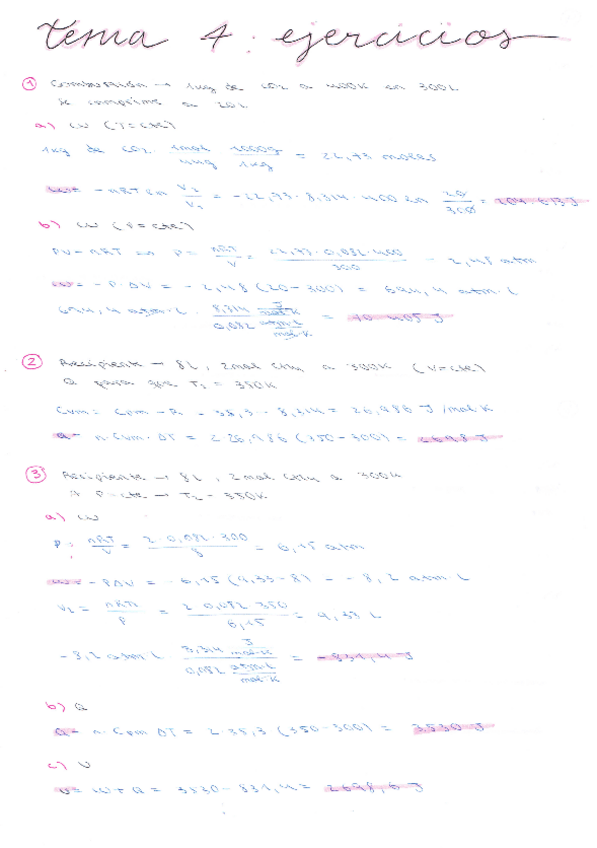 tema 4: ejercicios
① Combustión → 1kg de CO2 a 400K en 300L
Se comprime a 20L
a) W (T=cte)
1kg de CO2 · 1mol/44g · 1000g/1kg = 22,73 moles
W = -nRT ln V2/V1 = -22,73 · 8,314 · 400 ln 20/300 = 204.673 J
b) W (P=cte)
PV=nRT → P = nRT/V = 22,73 · 0,082 · 400/300 = 2,48 atm
W = -P·ΔV = -2,48 (20-300) = 694,4 atm·L
694,4 atm·L · 8,314 J/mol·K / 0,082 atm·L/mol·K = 70 405 J
② Recipiente → 8L, 2mol CH4 a 300K (V=cte)
Q para que T2 = 350K
Cvm = Cpm - R = 35,3 - 8,314 = 26,986 J/mol·K
Q = n·Cvm·ΔT = 2 · 26,986 (350-300) = 2698 J
③ Recipiente → 8L, 2mol CH4 a 300K
P=cte → T2 = 350K
a) W
P = nRT/V = 2 · 0,082 · 300/8 = 6,15 atm
W = -PΔV = -6,15 (9,33-8) = -8,2 atm·L
V2 = nRT2/P = 2 · 0,082 · 350/6,15 = 9,33 L
-8,2 atm·L · 8,314 J/mol·K / 0,082 atm·L/mol·K = -831,4 J
b) Q
Q = n·Cpm ΔT = 2 · 35,3 (350-300) = 3530 J
c) U
U = W + Q = 3530 - 831,4 = 2698,6 J